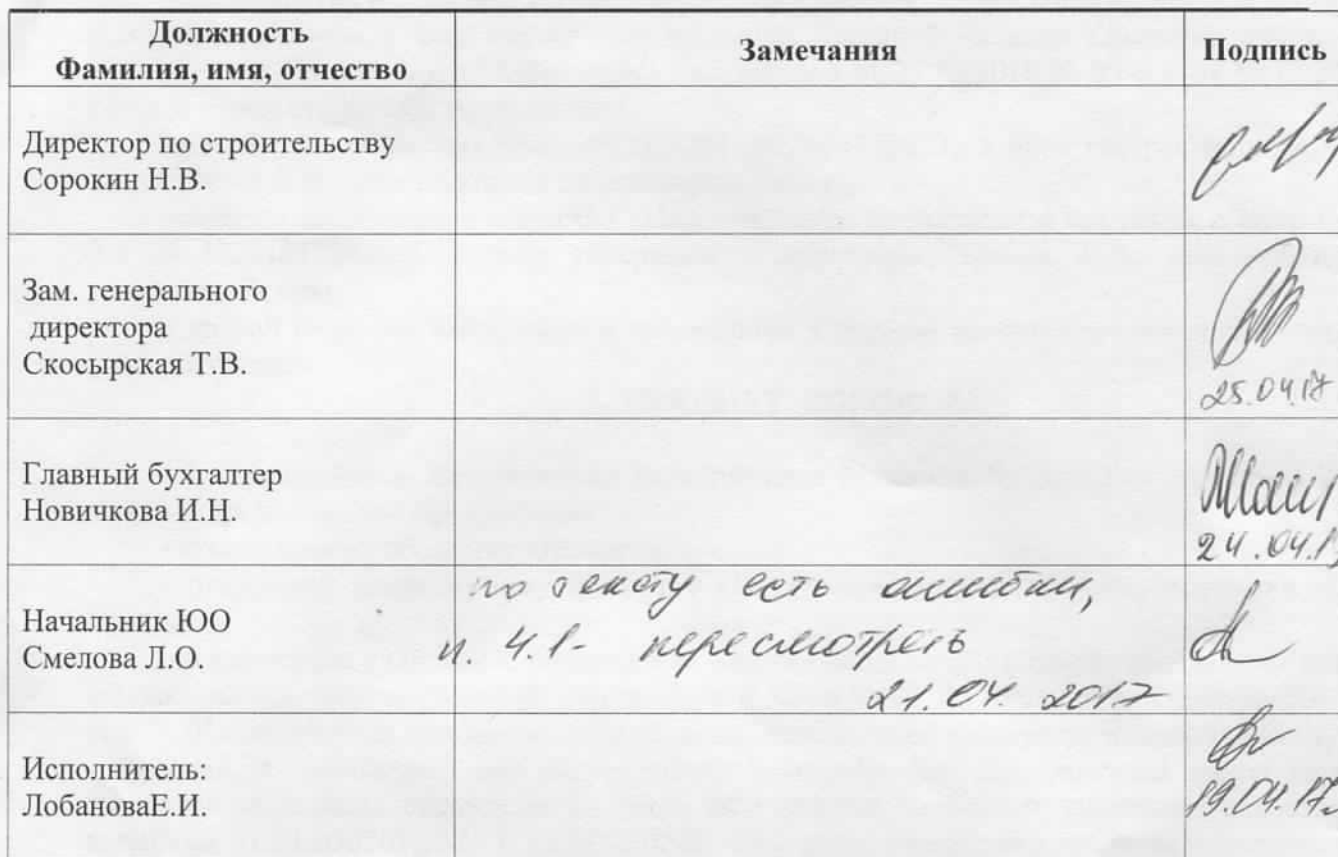 Должность
Фамилия, имя, отчество
Замечания
Подпись
Директор по строительству
Сорокин Н.В.
Зам. генерального
директора
Скосырская Т.В.
25.04.17
Главный бухгалтер
Новичкова И.Н.
24.04.17
Начальник ЮО
Смелова Л.О.
по тексту есть ошибки,
п. 4.1- пересмотреть
21.04.2017
Исполнитель:
ЛобановаЕ.И.
19.04.17г